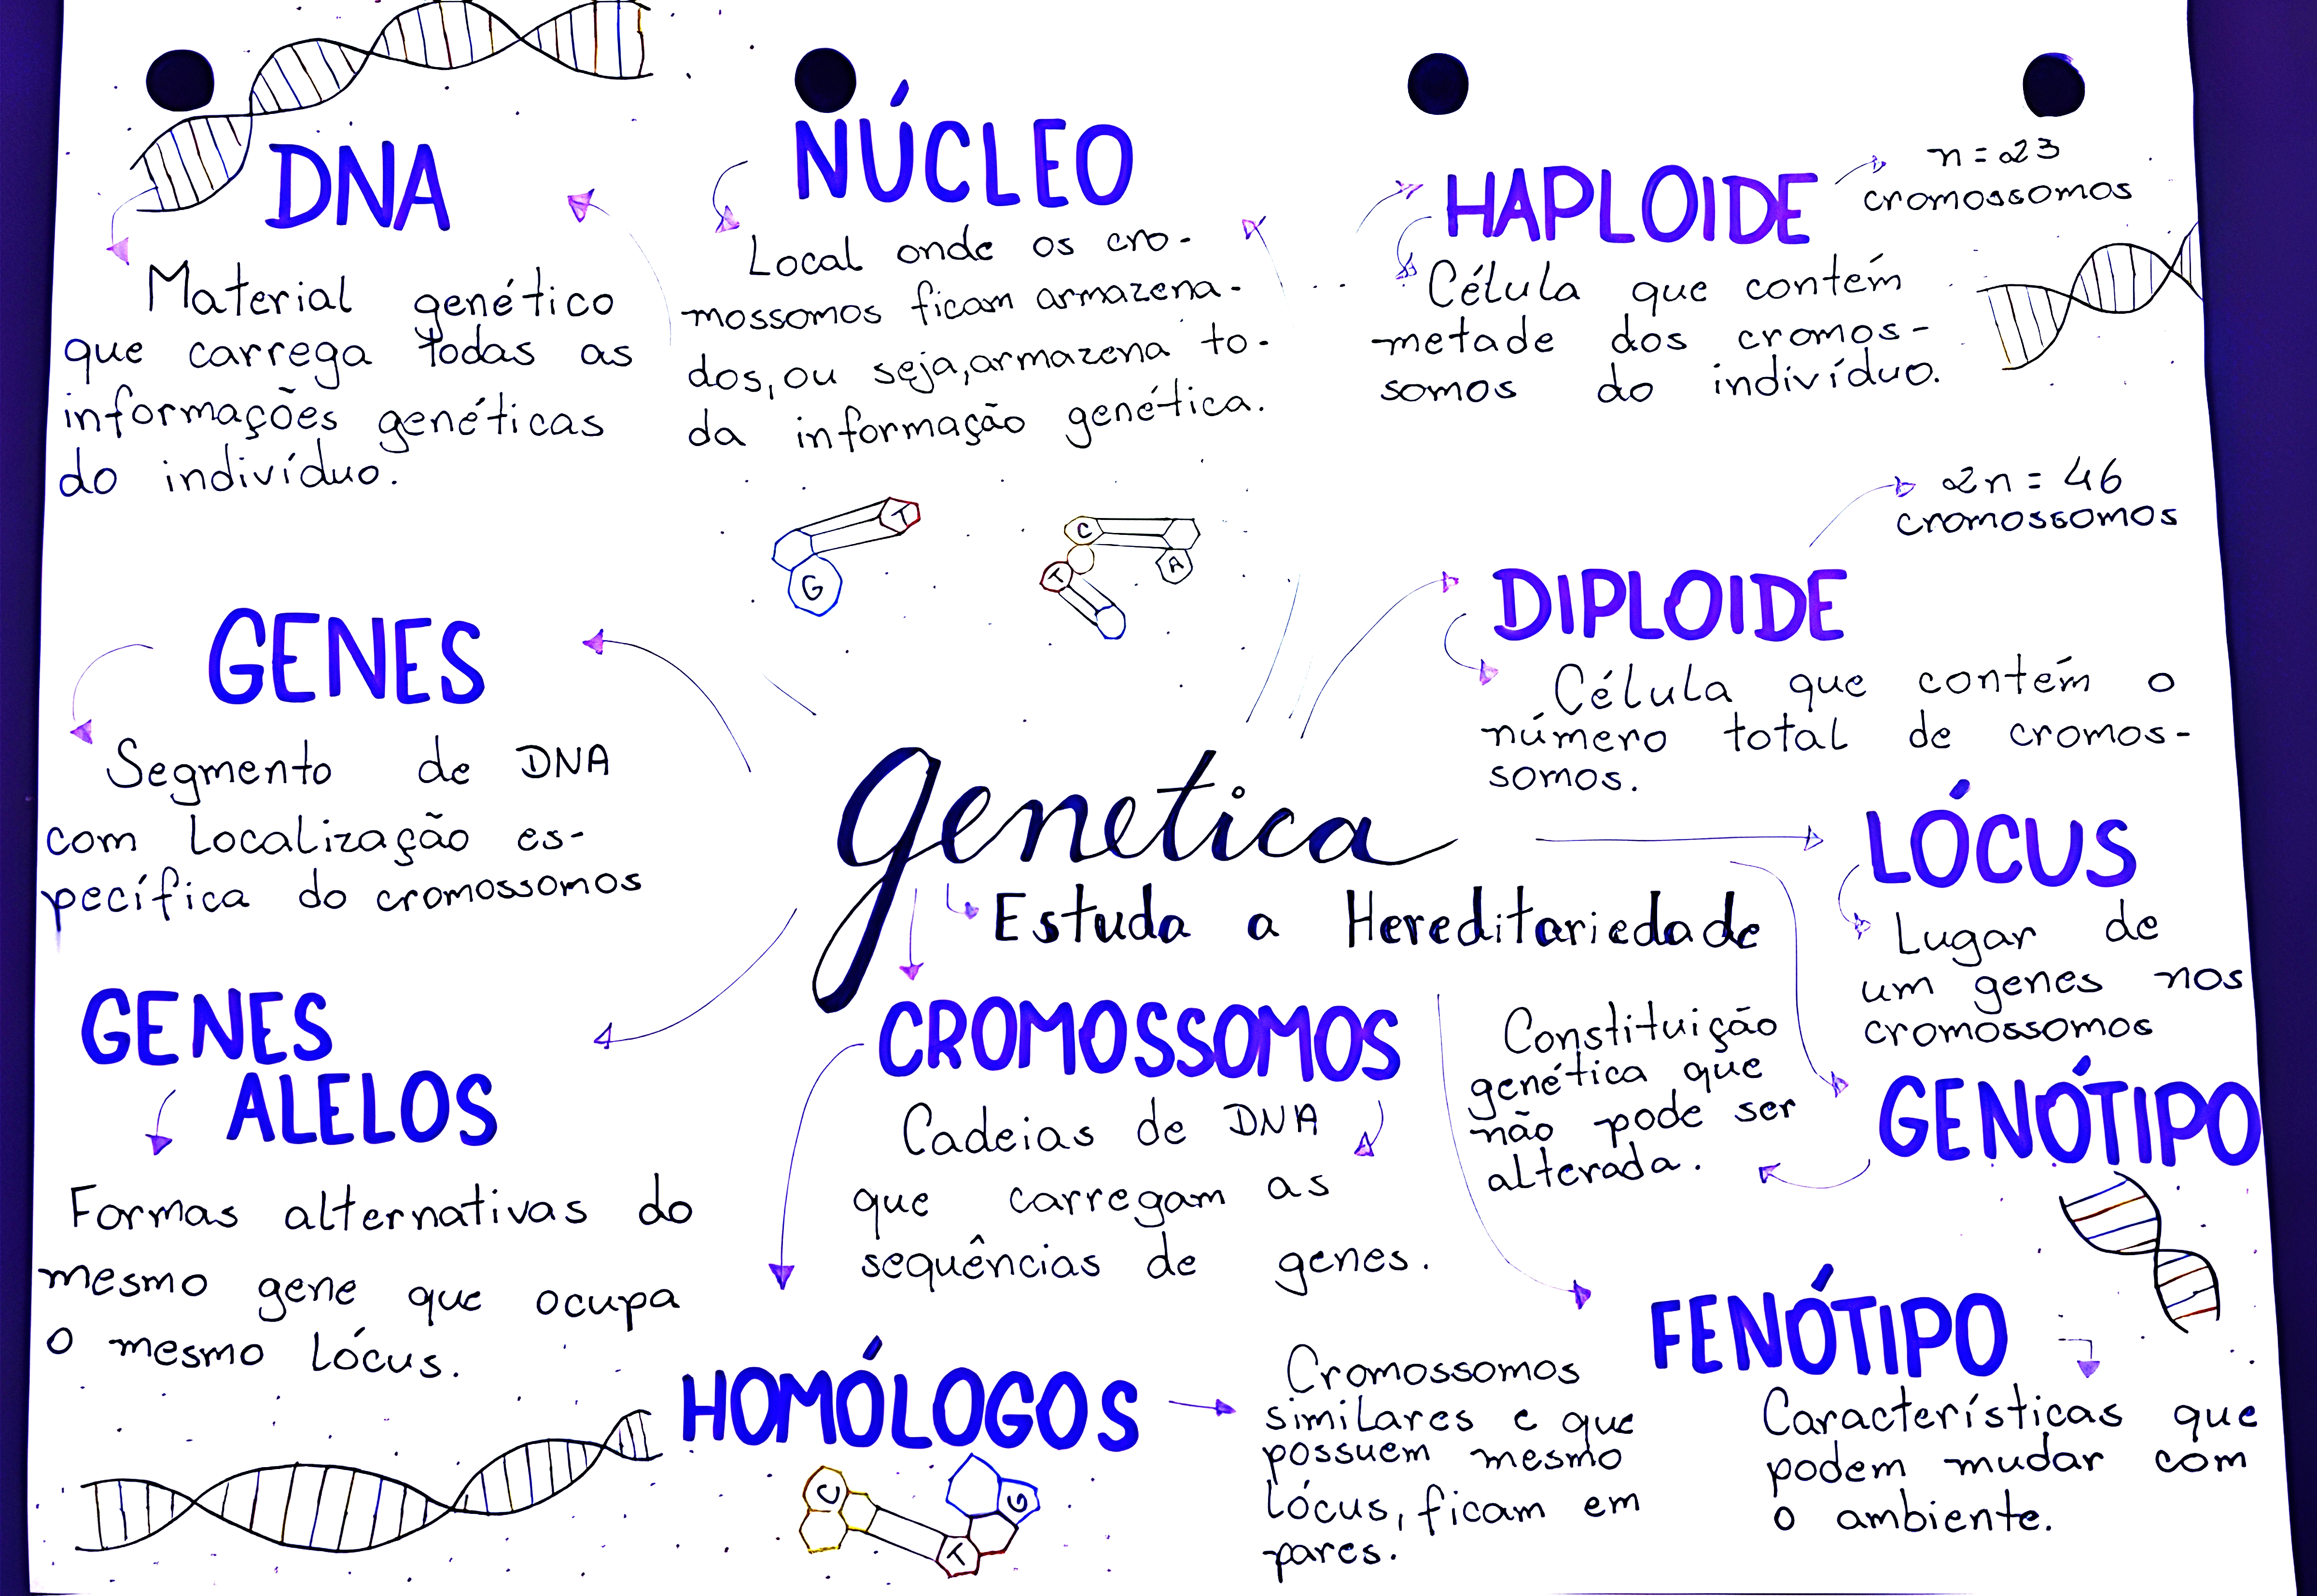 DNA
Material genético
que carrega todas as
informações genéticas
do indivíduo.
NÚCLEO
Local onde os cro-
mossomos ficam armazena-
dos, ou seja, armazena to-
da informação genética.
HAPLOIDE
n = 23
cromossomos
Célula que contém
metade dos cromos-
somos do indivíduo.
T
G
C
T
A
2n = 46
cromossomos
DIPLOIDE
Célula que contém o
número total de cromos-
somos.
GENES
Segmento de DNA
com localização es-
pecífica do cromossomos
genetica
Estuda a Hereditariedade
LÓCUS
Lugar de
um genes nos
cromossomos
GENES
ALELOS
Formas alternativas do
mesmo gene que ocupa
o mesmo lócus.
CROMOSSOMOS
Cadeias de DNA
que carregam as
sequências de genes.
GENÓTIPO
Constituição
genética que
não pode ser
alterada.
HOMÓLOGOS
Cromossomos
similares e que
possuem mesmo
lócus, ficam em
pares.
FENÓTIPO
Características que
podem mudar com
o ambiente.
C
G
T